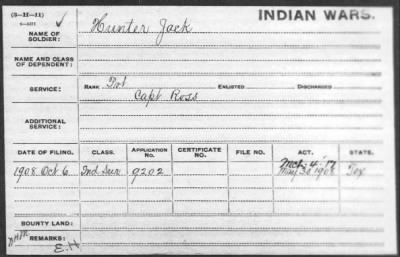 (3-II-11)
INDIAN WARS.
NAME OF SOLDIER: Hunter Jack
NAME AND CLASS OF DEPENDENT:
SERVICE: RANK ENLISTED DISCHARGED
Capt Ross
ADDITIONAL SERVICE:
DATE OF FILING. CLASS. APPLICATION NO. CERTIFICATE NO. FILE NO. ACT. STATE.
Mch 4 '17
1908 Oct 6. Ind Sur 9202 May 30 1908 Tex
BOUNTY LAND:
REMARKS: E.H